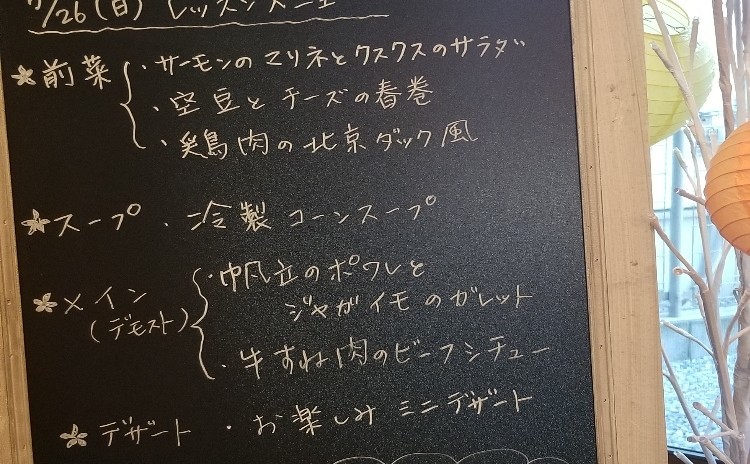 /26(日) レッスンメニュー
前菜 ・サーモンのマリネとクスクスのサラダ
・空豆とチーズの春巻
・鶏肉の北京ダック風
スープ ・冷製コーンスープ
メイン ・帆立のポワレと
(デモスト) ジャガイモのガレット
・牛すね肉のビーフシチュー
デザート ・お楽しみミニデザート